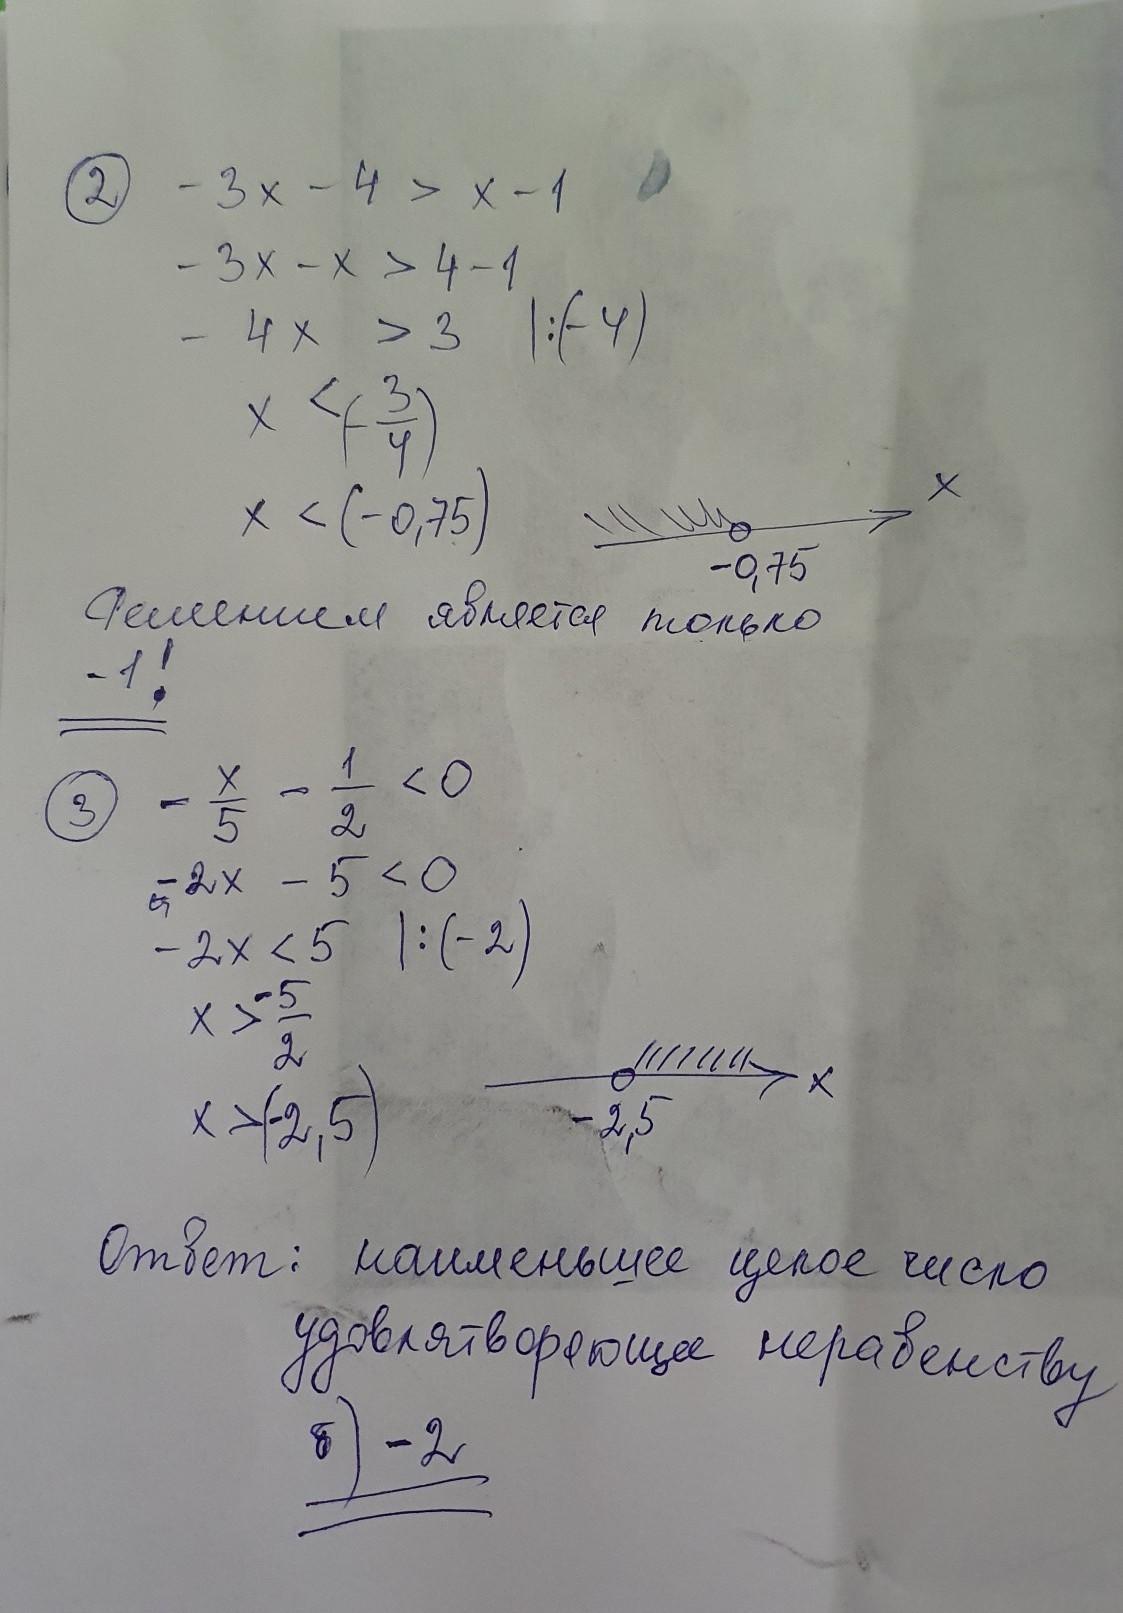 ② -3x - 4 > x - 1
-3x - x > 4 - 1
- 4x > 3 |:(-4)
x < (-3/4)
x < (-0,75)
x
-0,75
Решением является только
-1!
③ - x/5 - 1/2 < 0
-2x - 5 < 0
-2x < 5 |:(-2)
x > -5/2
x > (-2,5)
x
-2,5
Ответ: наименьшее целое число
удовлятворяющее неравенству
б) -2